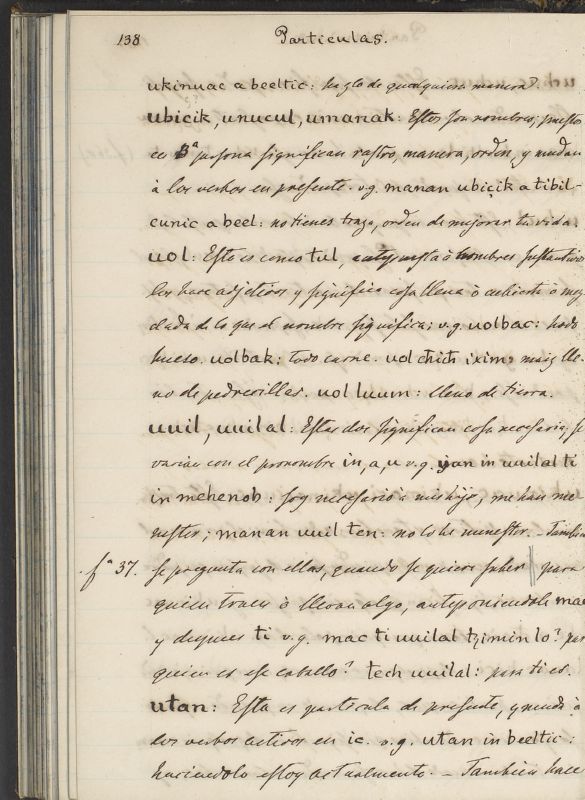 138 Particulas.
ukinuac a beeltic: hazlo de qualquiera manera.
ubicik, unucul, umanak: Estos son nombres, puestos
en 3ª persona significan rastro, manera, orden, y mudan
à los verbos en presente. v.g. manan ubicik a tibil-
cunic a beel: no tienes traza, orden de mejorar tu vida.
uol: Este es como tul, antepuesta à nombres sustantivos
los hace adjetivos y significa cosa llena ò caliente ò mez
clada de lo que el nombre significa; v.g. uolbac: todo
hueso. uolbak: todo carne. uol chich ixim: maiz lle-
no de pedrecillas. uol luum: lleno de tierra.
uuil, uuilal: Estas dos significan cosa necesaria, se
varian con el pronombre in, a, u v.g. yan in uuilal ti
in mehenob: soy necesario à mis hijos, me han me
nester; manan uuil ten: no lo he menester. - Tambien
fª 37. se pregunta con ellas, quando se quiere saber para
quien traen ò llevan algo, anteponiendole mac
y despues ti v.g. mac ti uuilal tzimin lo? para
quien es ese caballo? tech uuilal: para ti es.
utan: Esta es particula de presente, y muda à
los verbos activos en ic. v.g. utan in beeltic:
haciendolo estoy actualmente. - Tambien hace